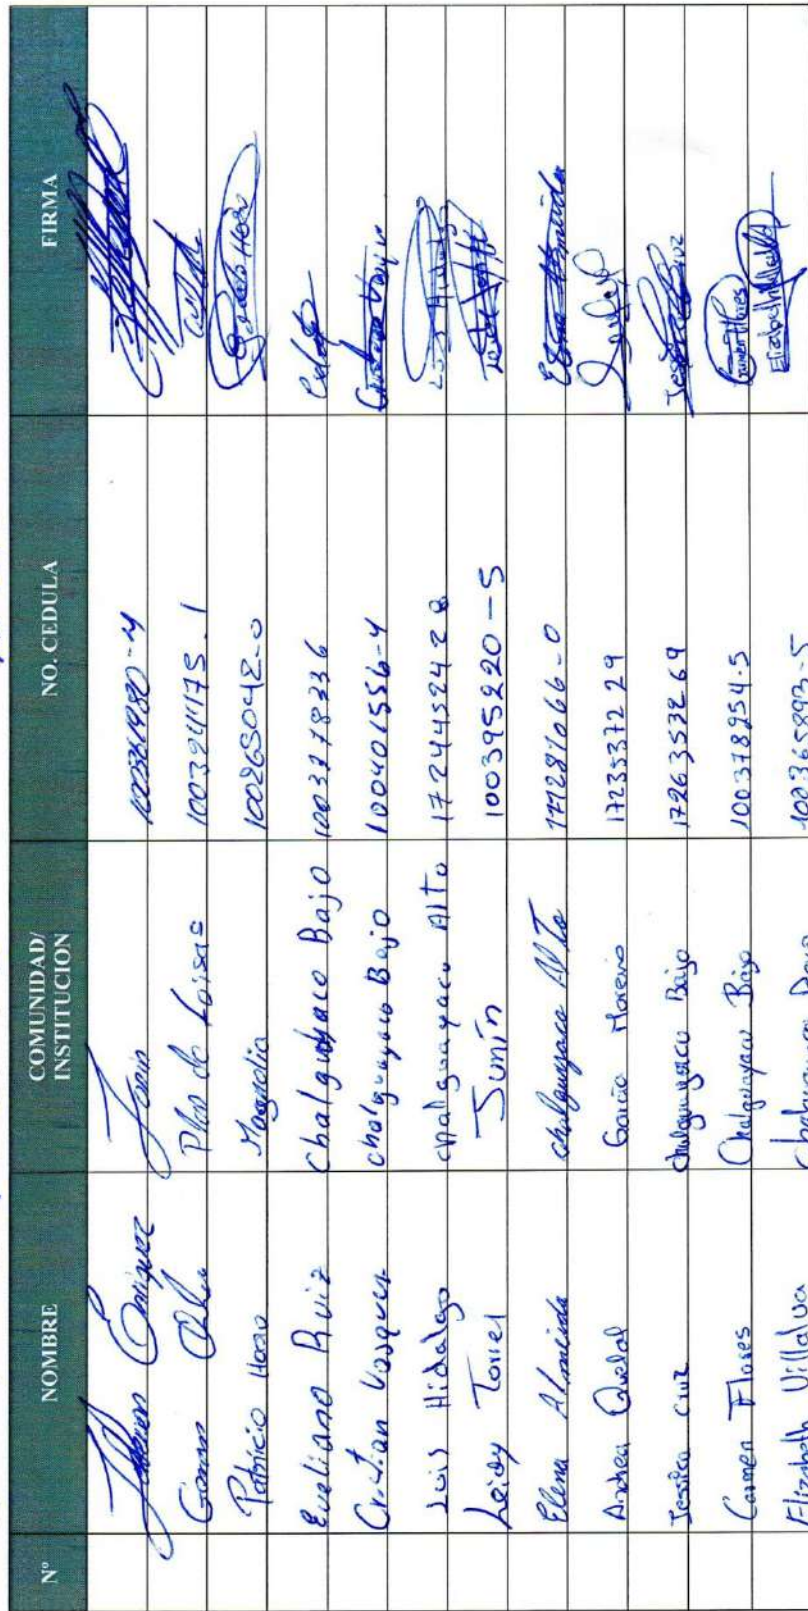 Nº NOMBRE COMUNIDAD/ INSTITUCION NO. CEDULA FIRMA
Enriquez Junin
Plan de 1003941175-1
Patricio Magnolia 100265042-0
Eveliano Ruiz Chalguayaco Bajo 1003778336
Cristian Vasquez chalguayaco Bajo 100401556-4
Luis Hidalgo chalguayaco Alto 1724452428 Luis Hidalgo
Leidy Torres Junín 100395220-5
Elena Almeida chalguayaco Alto 171281066-0 Elena Almeida
Andrea Quelal García Moreno 1723537229
Jessica Cruz chalguayaco Bajo 1726353269
Carmen Flores Chalguayaco Bajo 100378954-5 Carmen Flores
Elizabeth Villalva 100365893-5 Elizabeth Villalva